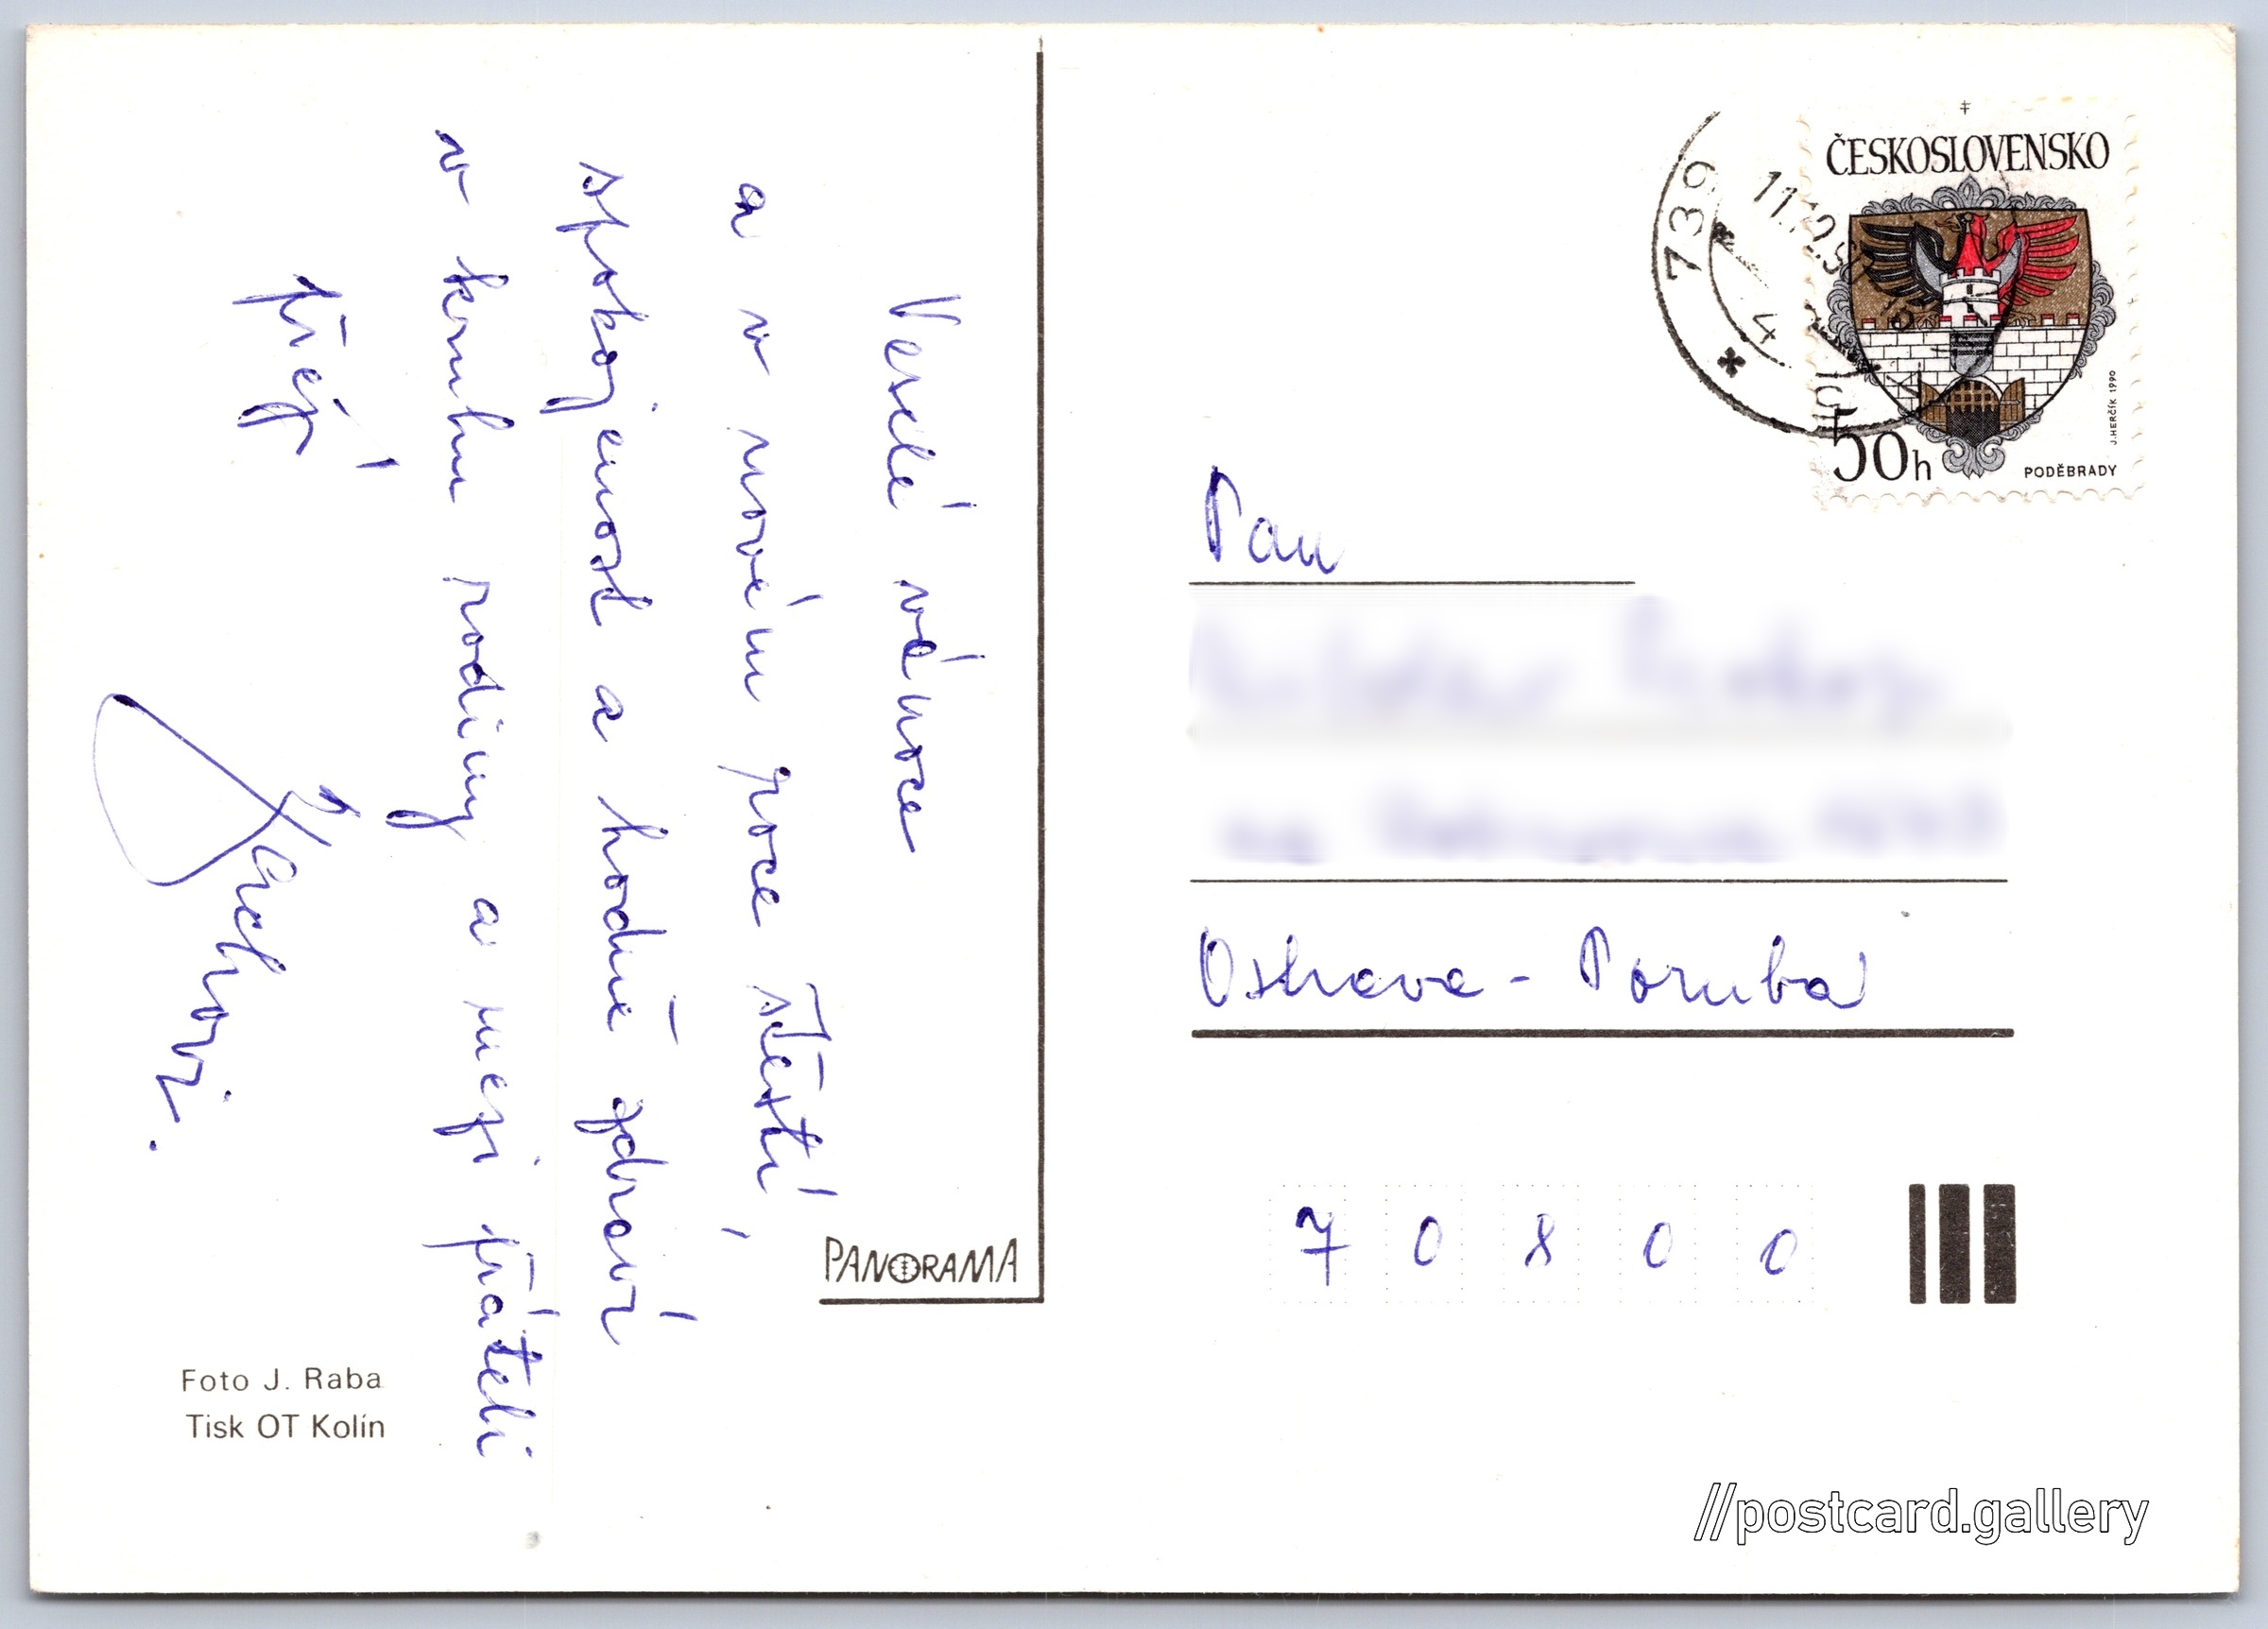 Veselé vánoce
a v novém roce štěstí,
spokojenost a hodně zdraví
v kruhu rodiny a mezi přáteli
přejí
PANORAMA
Foto J. Raba
Tisk OT Kolín
ČESKOSLOVENSKO
50h
PODĚBRADY
J.HERČÍK 1990
739
4
Pan
Ostrava - Poruba
7 0 8 0 0
//postcard.gallery